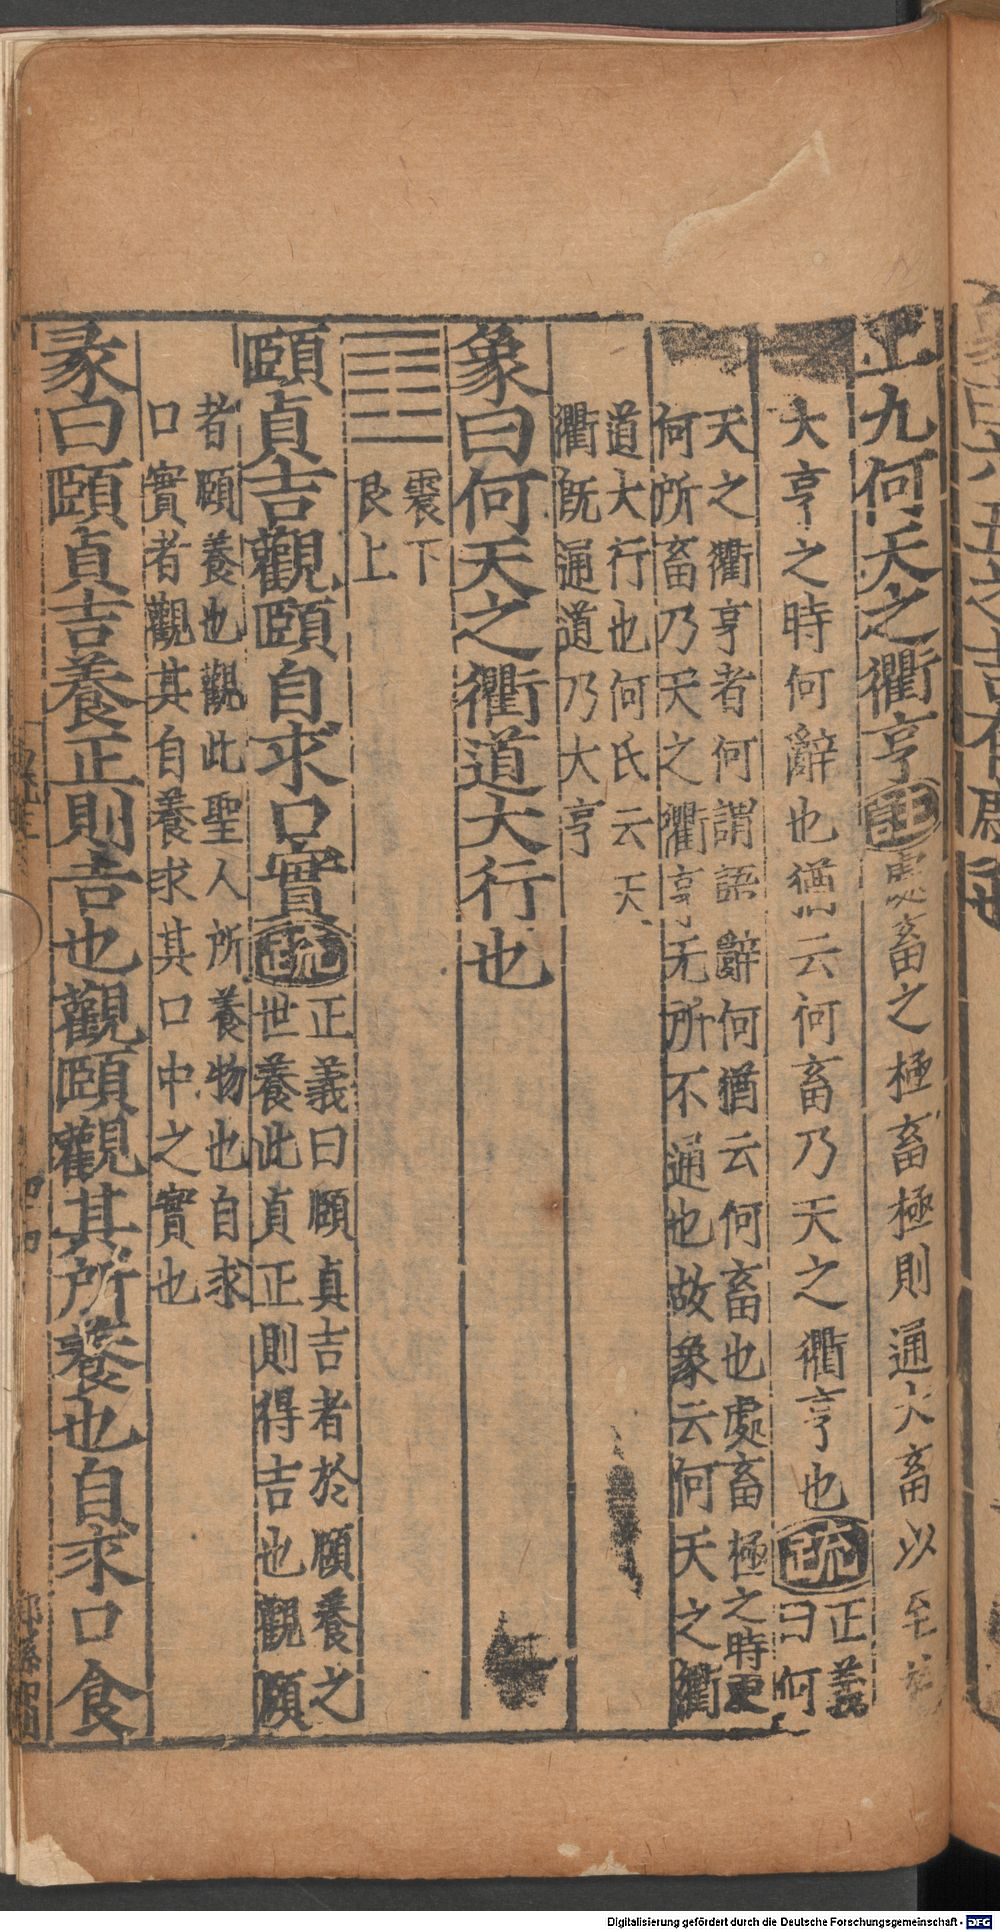 上九何天之衢亨註處畜之極畜極則通大畜以至於
大亨之時何辭也猶云何畜乃天之衢亨也疏正義
曰何
天之衢亨者何謂語辭何猶云何畜也處畜極之時更
何所畜乃天之衢亨无所不通也故象云何天之衢
道大行也何氏云天
衢旣通道乃大亨
象曰何天之衢道大行也
震下
艮上
頤貞吉觀頤自求口實疏正義曰頤貞吉者於頤養之
世養此貞正則得吉也觀頤
者頤養也觀此聖人所養物也自求
口實者觀其自養求其口中之實也
彖曰頤貞吉養正則吉也觀頤觀其所養也自求口食
Digitalisierung gefördert durch die Deutsche Forschungsgemeinschaft - DFG